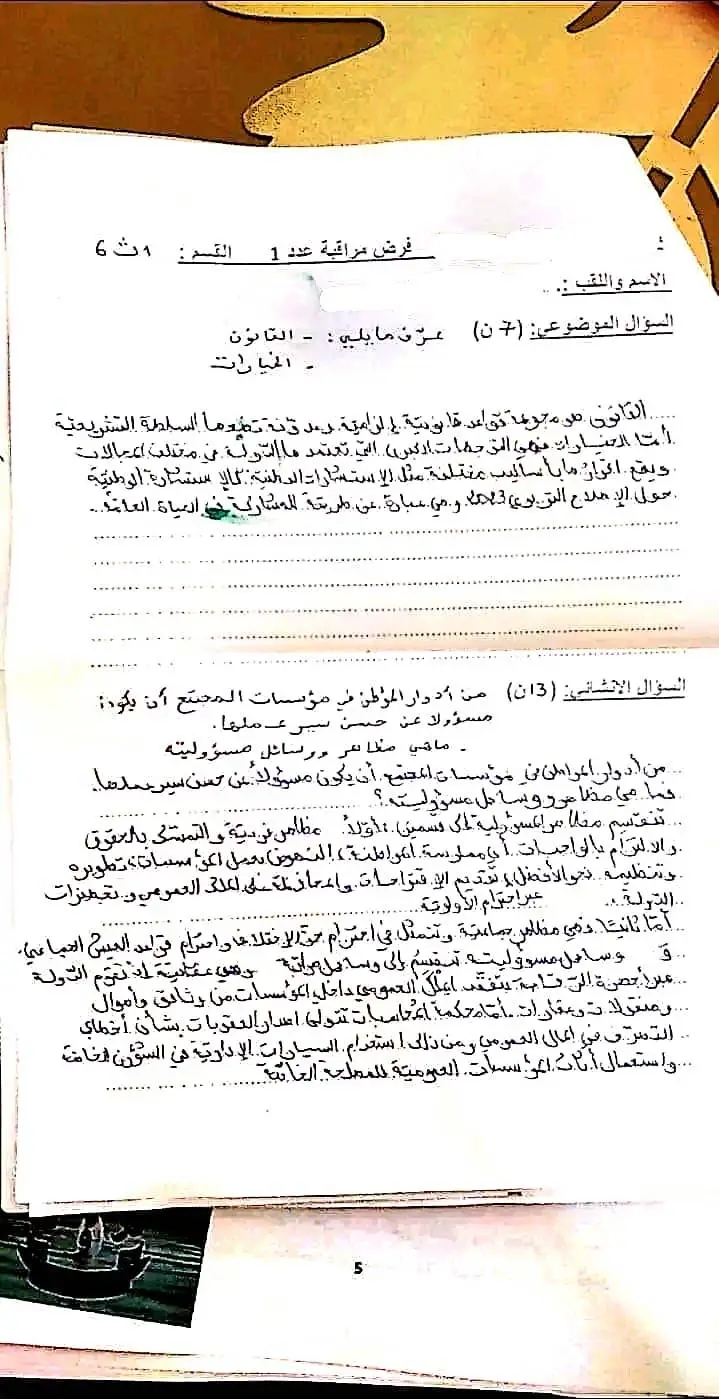 فرض مراقبة عدد 1 القسم : 1 ث 6
الاسم واللقب :
السؤال الموضوعي: (7 ن) عرّف ما يلي : - القانون
- الخيارات
القانون هو مجموعة قواعد قانونية إلزامية مدونة تضعها السلطة التشريعية
أمّا الخيارات فهي التوجهات الكبرى التي تعتمدها الدولة في مختلف المجالات
ويقع إقرارها بأساليب مختلفة مثل الإستشارات الوطنية كالإستشارة الوطنية
حول الإصلاح التربوي 2023 وهي عبارة عن طريقة للمشاركة في الحياة العامة.
السؤال الانشائي: (13 ن) من أدوار المواطن في مؤسسات المجتمع أن يكون
مسؤولا عن حسن سير عملها.
- ماهي مظاهر ووسائل مسؤوليته
من أدوار المواطن في مؤسسات المجتمع أن يكون مسؤولاً عن حسن سير عملها.
فما هي مظاهر ووسائل مسؤوليته؟
تنقسم مظاهر المسؤولية إلى قسمين: أوّلاً مظاهر فردية والتمسّك بالحقوق
والالتزام بالواجبات أي ممارسة المواطنة، النهوض بعمل المؤسسات، تطويره
وتنظيمه نحو الأفضل، تقديم الإقتراحات والمحافظة على الملك العمومي وتجهيزات
الدولة. عبر احترام الأولوية
أمّا ثانيًا فهي مظاهر جماعية وتتمثل في احترام حق الإختلاف واحترام قواعد العيش الجماعي.
ووسائل مسؤوليته تنقسم إلى وسائل مراقبة وهي عقابية إذ تقوم الدولة
عبر أجهزة الرقابة بتفقد الملك العمومي داخل المؤسسات من وثائق وأموال
ومنقولات وعقارات. أمّا محكمة المحاسبات تتولى إصدار العقوبات بشأن أخطاء
التصرف في المال العمومي ومن ذلك استخدام السيارات الإدارية في الشؤون الخاصة
واستعمال أثاث المؤسسات العمومية للمصلحة الخاصّة
5